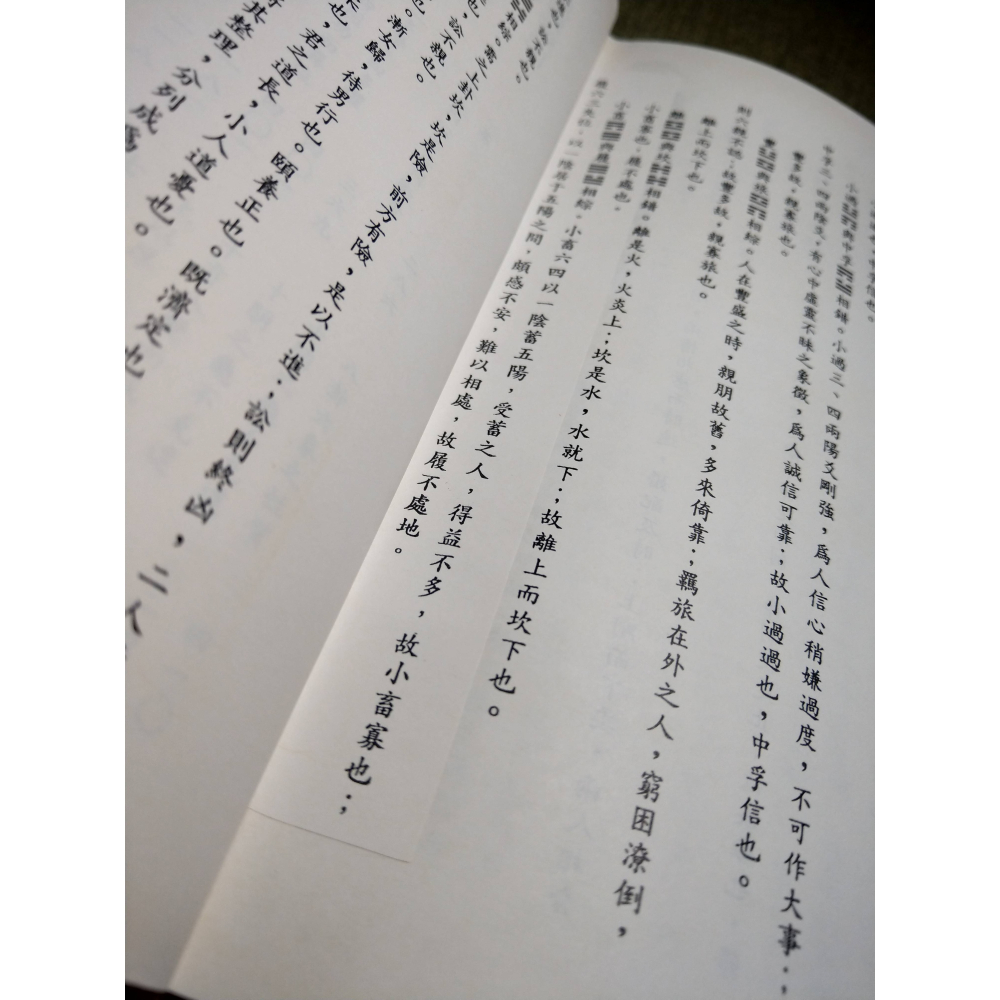 信也。
小過䷽與中孚䷼相錯。小過三、四兩陽爻剛強，爲人信心稍嫌過度，不可作大事；
中孚三、四兩陰爻，有心中虛靈不昧之象徵，爲人誠信可靠；故小過過也，中孚信也。
豐多故，親寡旅也。
豐䷶與旅䷷相綜。人在豐盛之時，親朋故舊，多來倚靠；羈旅在外之人，窮困潦倒，
則六親不認；故豐多故，親寡旅也。
離上而坎下也。
離䷝與坎䷜相錯。離是火，火炎上；坎是水，水就下；故離上而坎下也。
小畜寡也；履不處也。
小畜䷈與履䷉相綜。小畜六四以一陰蓄五陽，受蓄之人，得益不多，故小畜寡也；
履六三失位，以一陰居于五陽之間，頗感不安，難以相處，故履不處地。
也，訟不親也。
相綜。需之上卦坎，坎是險，前方有險，是以不進；訟則終凶，二人
也，訟不親也。
也。漸女歸，待男行也。頤養正也。既濟定也
也，君之道長，小人道憂也。
其整理，分列成爲